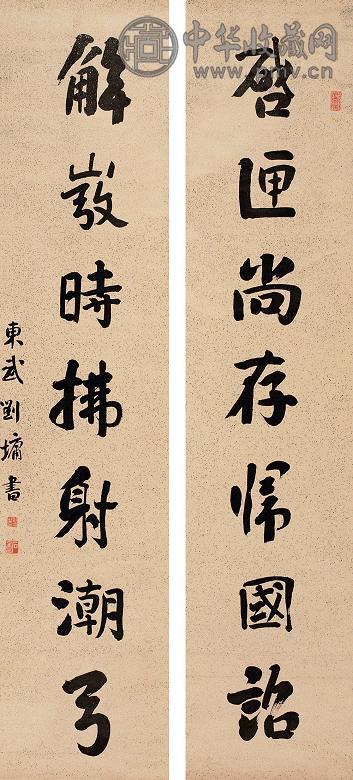 中华收藏网
www.pmv.cn
啓匣尚存歸國詔
解弢時拂射潮弓
東武劉墉書